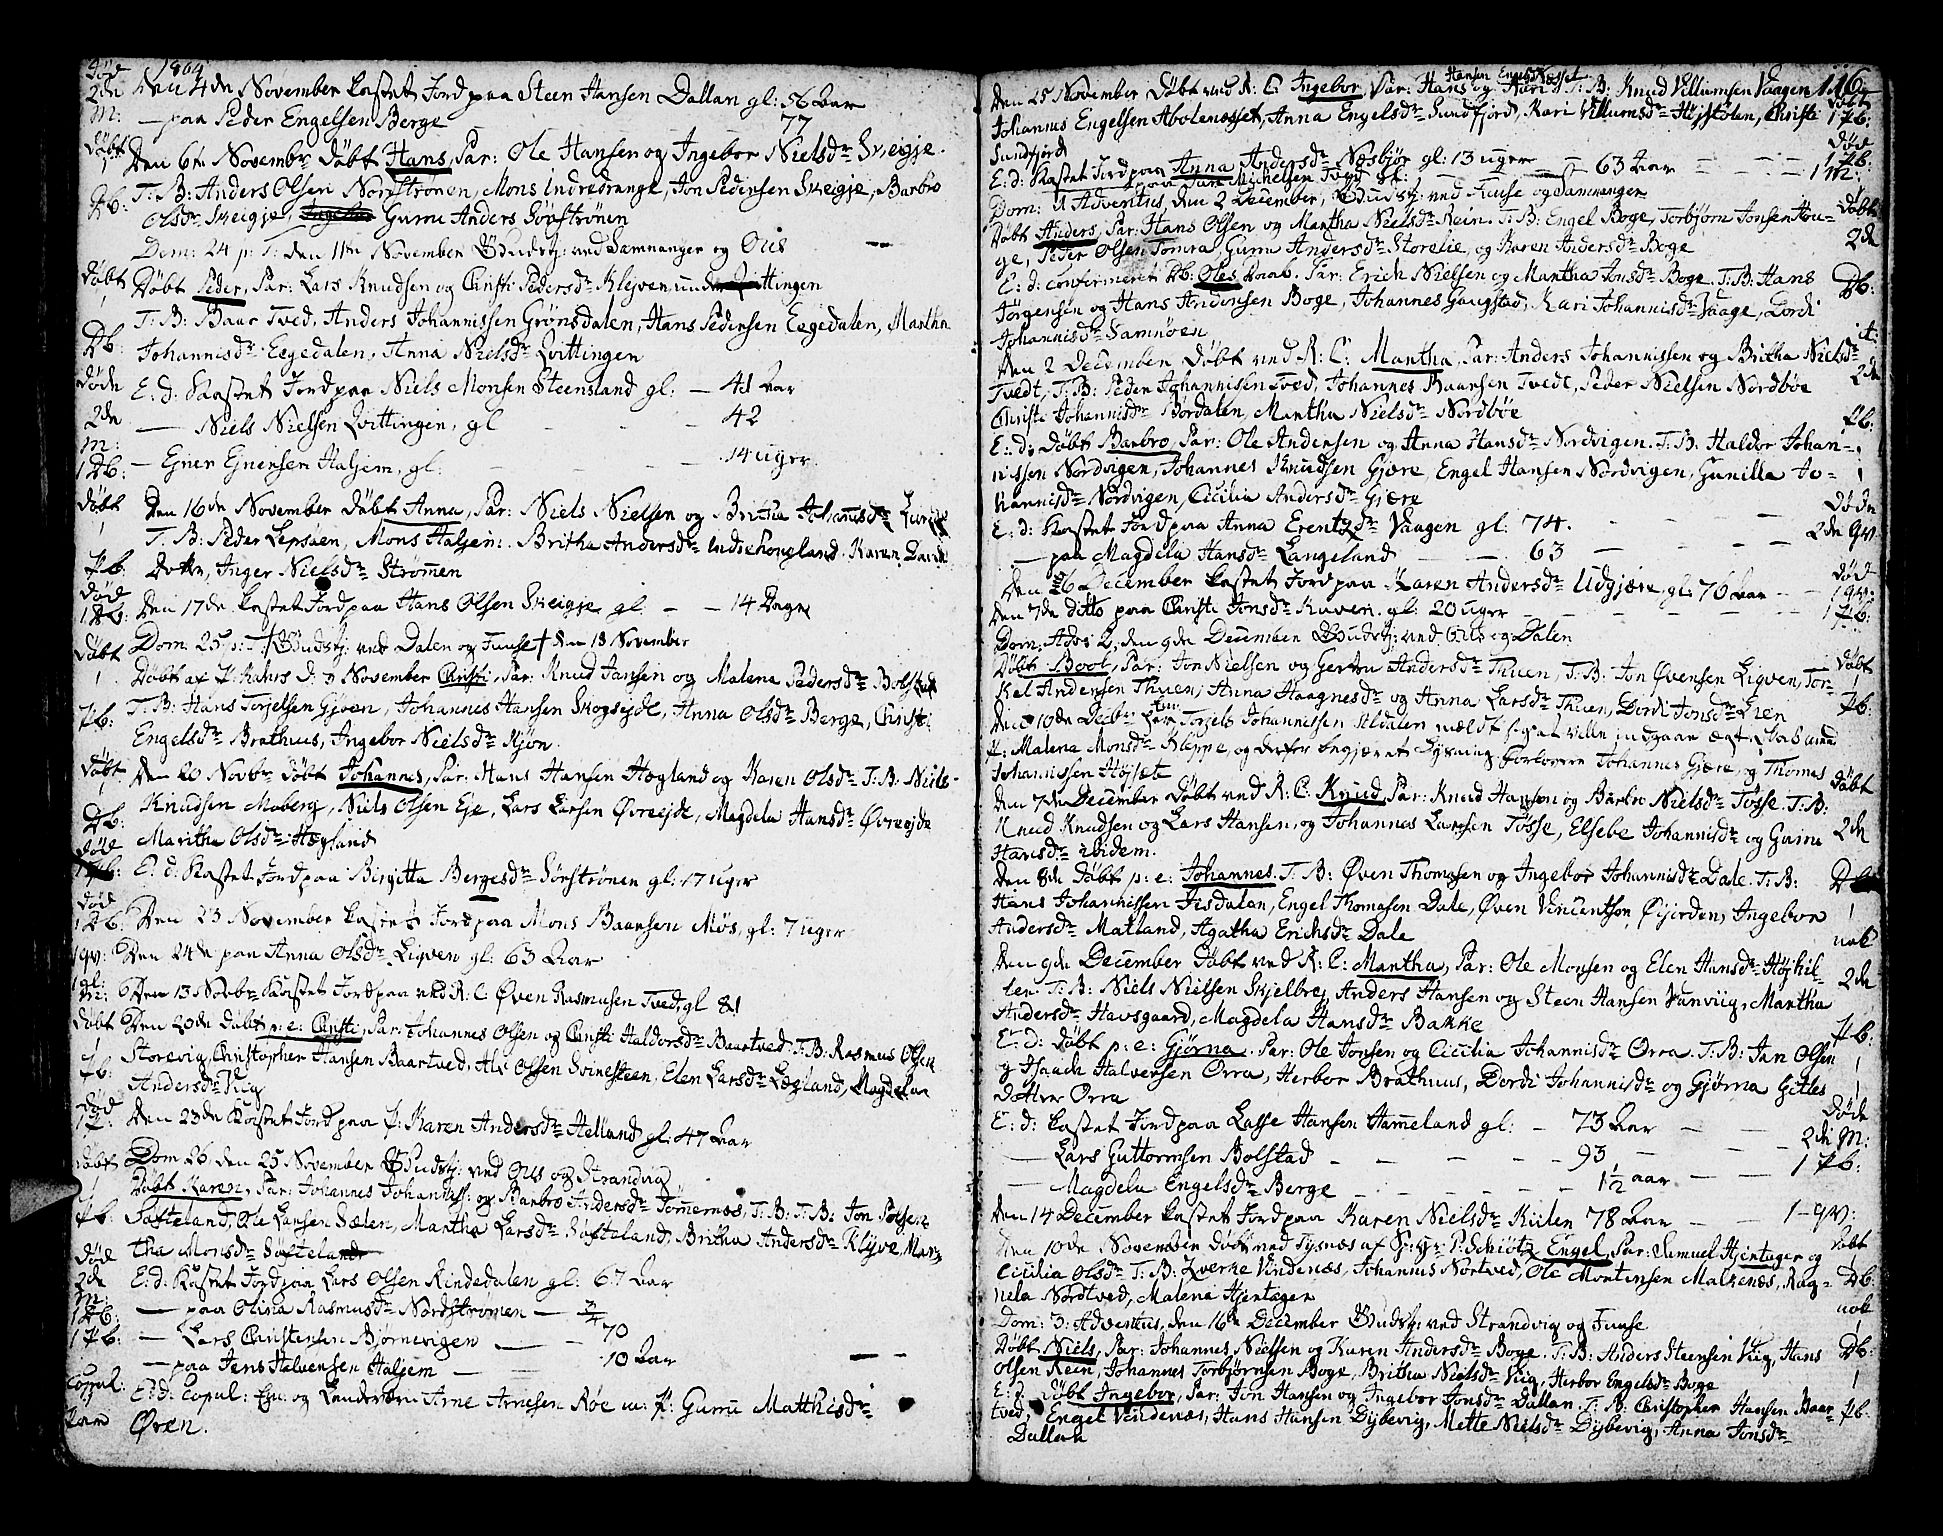 1804
Død 2de M: Den 4de November kastet Jord paa Steen Hansen Dallan gl: 56 Aar
— paa Peder Engelsen Berge 77
Døbt 1 Den 6te Novembr Døbt Hans, Par: Ole Hansen og Ingebor Nielsdr Skeigje.
Db: T: B: Anders Olsen Nordstrønen, Mons Indrestrange, Jon Pedersen Skeigje, Barbro
Olsdr Skeigje, Guru Anders Sørstrønen
Dom: 24 p: T: den 11te November Gudstj: ved Samnanger og Ous
Døbt 1 Døbt Peder, Par: Lars Knudsen og Christi Pedersdr Klejven
T: B: Baar Tved, Anders Johannissen Grønsdalen, Hans Pedersen Eegedalen, Martha
Db: Johannisdr Eegedalen, Anna Nielsdr Qvittingen
døde E: d: Kastet Jord paa Niels Monsen Steensland gl: — 41 Aar
2de M: — Niels Nielsen Qvittingen, gl 42
1 Db: — Ejner Ejnersen Haljem, gl: 14 uger
Døbt 1 Den 16de November Døbt Anna, Par: Niels Nielsen og Britha Johannisdr
T: B: Peder Lepsøen, Mons Haljem, Britha Andersdr Indsehougland, Karen David
Pb: Dotter, Inger Nielsdr Strømen
død 1 Db: Den 17de kastet Jord paa Hans Olsen Skeigje gl: — — 14 Dage
Dom: 25 p: T: Gudstj: ved Dalen og Fuuse den 18 November
Døbt 1 Døbt af November Christi, Par: Knud Jansen og Malena Pedersdr Bolstad
Pb: T: B: Hans Torjelsen Gjøen, Johannes Hansen Skogsejde, Anna Olsdr Berge, Christi
Engelsdr Brathuus, Ingebor Nielsdr Njøn
Døbt 1 Den 20 Novbr Døbt Johannes, Par: Hans Hansen Hægland og Karen Olsdr T: B: Niels
Db: Knudsen Moberg, Niels Olsen Eje, Lars Larsen Øvreejde, Magdela Hansdr Øvreejde
Maritha Olsdr Hægland
døde 1 Pb: E: d: Kastet Jord paa Birgitta Bergesdr Sørstrønen gl: 17 uger
død 1 Db: Den 23 November kastet Jord paa Mons Baarsen Møs, gl: 7 uger
1 qv: Den 24de paa Anna Olsdr Ligven gl: 63 Aar
1 gl: M: Den 13 Novbr Kastet Jord paa ved R: C: Øven Rasmusen Tved, gl 81
Døbt 1 Den 20de Døbt p: e: Christi, Par: Johannes Olsen og Christi Haldorsdr Baartved. T: B: Rasmus Olsen
Pb: Storevig, Christopher Hansen Baartved, Ale Olssen Svinesteen, Elen Larsdr Lægland, Magdela
Andersdr Viig
død 1 P: Den 23de Kastet Jord paa P: Karen Andersdr Helland gl: 47 Aar
Dom 26, den 25 November Gudstj: ved Ous og Strandvig
Døbt 1 Døbt Karen, Par: Johannes Johannes: og Barbro Andersdr Tømernes, T: B: T: B: Jon
Pb: Søfteland, Ole Larsen Sælen, Martha Larsdr Søfteland, Britha Andersdr Klyve, Mar-
tha Monsdr Søfteland
døde E: d: Kastet Jord paa Lars Olsen Rindedalen gl: 67 Aar
2de M: — paa Olina Rasmusdr Nordstrømen — 3/4
1 Db: — Lars Christensen Bjørnevigen — 70
1 Pb: — paa Jens Halvensen Haljem — 10 Aar
Copul: 1 Par E: d: Copul: Arne Arnesen Røe m: P: Guru Matthisdr
Øven.
116
Den 25 November Døbt ved R: C: Ingebor, Par: Hans Hansen Engelsnesset og Kari T: B: Knud Villumsen Vaagen
Johannes Engelsen Aboleneset, Anna Engelsdr Sundfjord, Kari Villumsdr Højstølen, Christi Døbt 1 Pb:
Sundfjord
E: d: Kastet Jord paa Anna Andersdr Næsbjør gl: 13 uger død 1 Pb:
paa Michelsen gl: — 63 Aar 1 M:
Dom: 1 Adventus, den 2 December, Gudstj: ved Fuuse og Samnanger
Døbt Anders, Par: Hans Olsen og Martha Nielsdr Rein. T: B: Engel Boge, Torbjørn Jonsen Hou- Døbt
ge, Peder Olsen Tomra, Guru Andersdr Storelie, og Karen Andersdr Boge 2de
E: d: confirmeret Db: Oles Daab. Par: Erich Nielsen og Martha Jonsdr Boge. T: B: Hans Db:
Jørgensen og Hans Andersen Boge, Johannes Gaugstad, Kari Johannisdr Vaage, Dordi
Johannisdr Samnøen
Den 2 December Døbt ved R: C: Martha, Par: Anders Johannissen og Britha Nielsdr
Tvedt, T: B: Peder Johannissen Tved, Johannes Baarsen Tvedt, Peder Nielsen Nordbøe 2de
Christi Johannisdr Børdalen, Martha Nielsdr Nordbøe Pb:
E: d: Døbt Barbro, Par: Ole Andersen og Anna Hansdr Nordvigen. T: B: Haldor Johan-
nissen Nordvigen, Johannes Knudsen Gjære, Engel Hansen Nordvigen, Gunilla Jo-
hannisdr Nordvigen, Cicilia Andersdr Gjære
E: d: Kastet Jord paa Anna Erentzdr Vaagen gl: 74. Døde 2de qv:
— paa Magdela Hansdr Langeland — 63
Den 6 December kastet Jord paa Karen Andersdr Udgjære, gl: 76 Aar død 1 qv:
Den 7de ditto paa Christi Jonsdr Kuven. gl: 20 uger 1 Pb:
Dom: Adv: 2, den 9de December Gudstj: ved Ous og Dalen
Døbt Boel, Par: Jon Nielsen og Gertru Andersdr Thuen, T: B: Jon Øvensen Ligven, Tor- Døbt 1
kel Andersen Thuen, Anna Haagnesdr og Anna Larsdr Thuen, Dordi Jonsdr Lien Pb:
Den 10de Decbr har Torjels Johannissen Aldalen meldt sig at ville indgaae Ægteskab med
P: Malena Monsdr Kleppe, og derfor begjæret Lysning. Forlovere Johannes Gjære, og Thomas
Johannissen Højsæte
Den 7de December Døbt ved R: C: Knud, Par: Knud Hansen og Barbro Nielsdr Tøsse. T: B: Døbt
Knud Knudsen og Lars Hansen, og Johannes Larsen Tøsse, Elsebe Johannisdr og Guru 2de
Hansdr ibidem.
Den 8de Døbt p: e: Johannes. T: B: Øven Thomasen og Ingebor Johannisdr Dale. T: B: Db
Hans Johannissen Jisdalen, Engel Thomasen Dale, Øven Vincentsen Øijorden, Ingebor
Andersdr Matland, Agatha Erichsdr Dale
Den 9de December Døbt ved R: C: Martha, Par: Ole Monsen og Elen Hansdr Højhil- 2de
ler. T: B: Niels Nielsen Skjelbrej, Anders Hansen og Steen Hansen Vanviig, Martha
Andersdr Havsgaard, Magdela Hansdr Bakke
E: d: Døbt p: e: Gjørna. Par: Ole Jonsen og Cicilia Johannisdr Orra. T: B: Jan Olsen Pb:
og Isaach Halversen Orra, Herbor Brathuus, Dordi Johannisdr og Gjørna Gitles
Dotter Orra
E: d: kastet Jord paa Lasse Hansen Hameland gl: — 73 Aar Døde 2de M:
— Lars Guttormsen Bolstad 93
— Magdela Engelsdr Berge 1/2 aar 1 Pb:
Den 14 December kastet Jord paa Karen Nielsdr Kiilen 78 Aar 1 — qv:
Den 10de November Døbt ved Tysnæs af Hr: P: Schiøtz Engel, Par: Samuel Hjertager og Døbt 1
Cicilia Olsdr T: B: Qverke Vindenæs, Johannis Nortved, Ole Mortensen Malkenæs, Rag- Db:
nela Nordtved, Malena Hjertager
Dom: 3: Adventus, den 16de December Gudstj: ved Strandvig og Fuuse
Døbt Niels, Par: Johannes Nielsen og Karen Andersdr Boge. T: B: Anders Steensen Viig, Hans Db:
Olsen Rein, Johannes Torbjørnsen Boge, Britha Nielsdr Viig, Herbor Engelsdr Boge
E: d: Døbt Ingebor, Par: Jon Hansen og Ingebor Jonsdr Dallan. T: B: Christopher Hansen Baar- Pb:
tved, Engel Vindenæs, Hans Hansen Dybevig, Mette Nielsdr Dybevig, Anna Jonsdr
Dallan